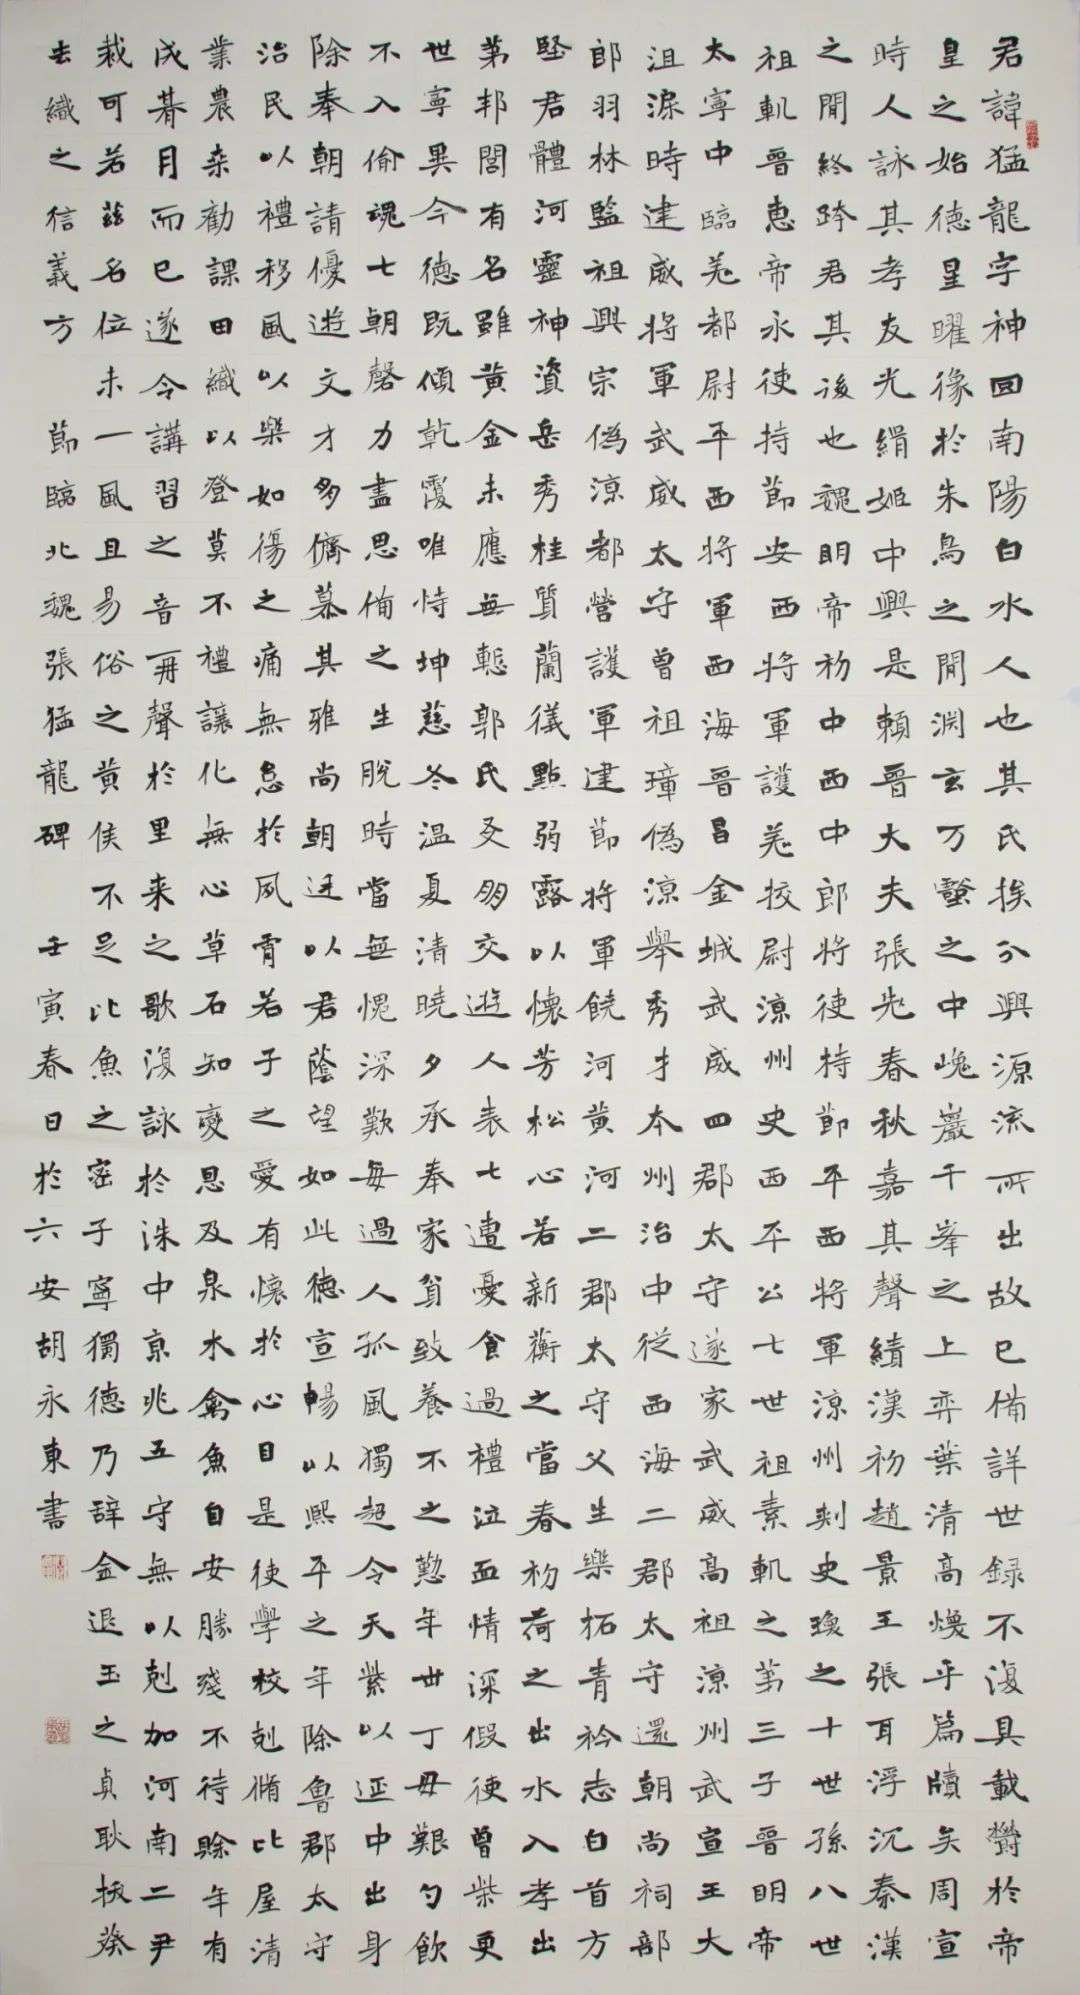 君諱猛龍字神囧南陽白水人也其氏挨分興源流所出故已備詳世録不復具載欝於帝
皇之始德星曜像於朱鳥之閒渊玄万壑之中巍巖千峯之上弈葉清高煥乎篇牘矣周宣
時人詠其孝友光緝姬中興是賴晉大夫張老春秋嘉其聲績漢初趙景王張耳浮沉秦漢
之閒終跨君其後也魏明帝初中西中郎將使持節平西將軍涼州刺史瓊之十世孫八世
祖軌晉惠帝永使持節安西將軍護羌挍尉涼州史西平公七世祖素軌之第三子晉明帝
太寧中臨羌都尉平西將軍西海晉昌金城武威四郡太守遂家武威高祖涼州武宣王大
沮渠時建威將軍武威太守曾祖璋偽涼舉秀才本州治中從西海二郡太守還朝尚祠部
郎羽林監祖興宗偽涼都營護軍建節將軍饒河黃河二郡太守父生樂栢青衿志白首方
堅君體河靈神資岳秀桂質蘭儀點弱露以懷芳松心若新蘅之當春初荷之出水入孝出
第邦閭有名雖黃金未應無慙郭氏友朋交遊人表七遭憂食過禮泣血情深假使曾柴更
世寧異今德既傾乾覆唯恃坤慈冬温夏清曉夕承奉家貧致養不之懃年卌丁母艱勺飲
不入偷魂七朝磬力盡思備之生脫時當無愧深歎每過人孤風獨超令天紫以延中出身
除奉朝請優遊文才多儕慕其雅尚朝廷以君蔭望如此德宣暢以熙平之年除魯郡太守
治民以禮移風以樂如傷之痛無怠於夙宵若子之愛有懷於心目是使學校剋脩比屋清
業農桒勸課田織以登莫不禮讓化無心草石知變恩及泉木禽魚自安勝殘不待賒年有
成朞月而已遂令講習之音再聲於里来之歌復詠於洙中京兆五守無以剋加河南二尹
裁可若茲名位未一風且易俗之黄侯不足比魚之密子寧獨德乃辞金退玉之貞耿拔葵
去織之信義方　節臨北魏張猛龍碑　壬寅春日於六安胡永東書